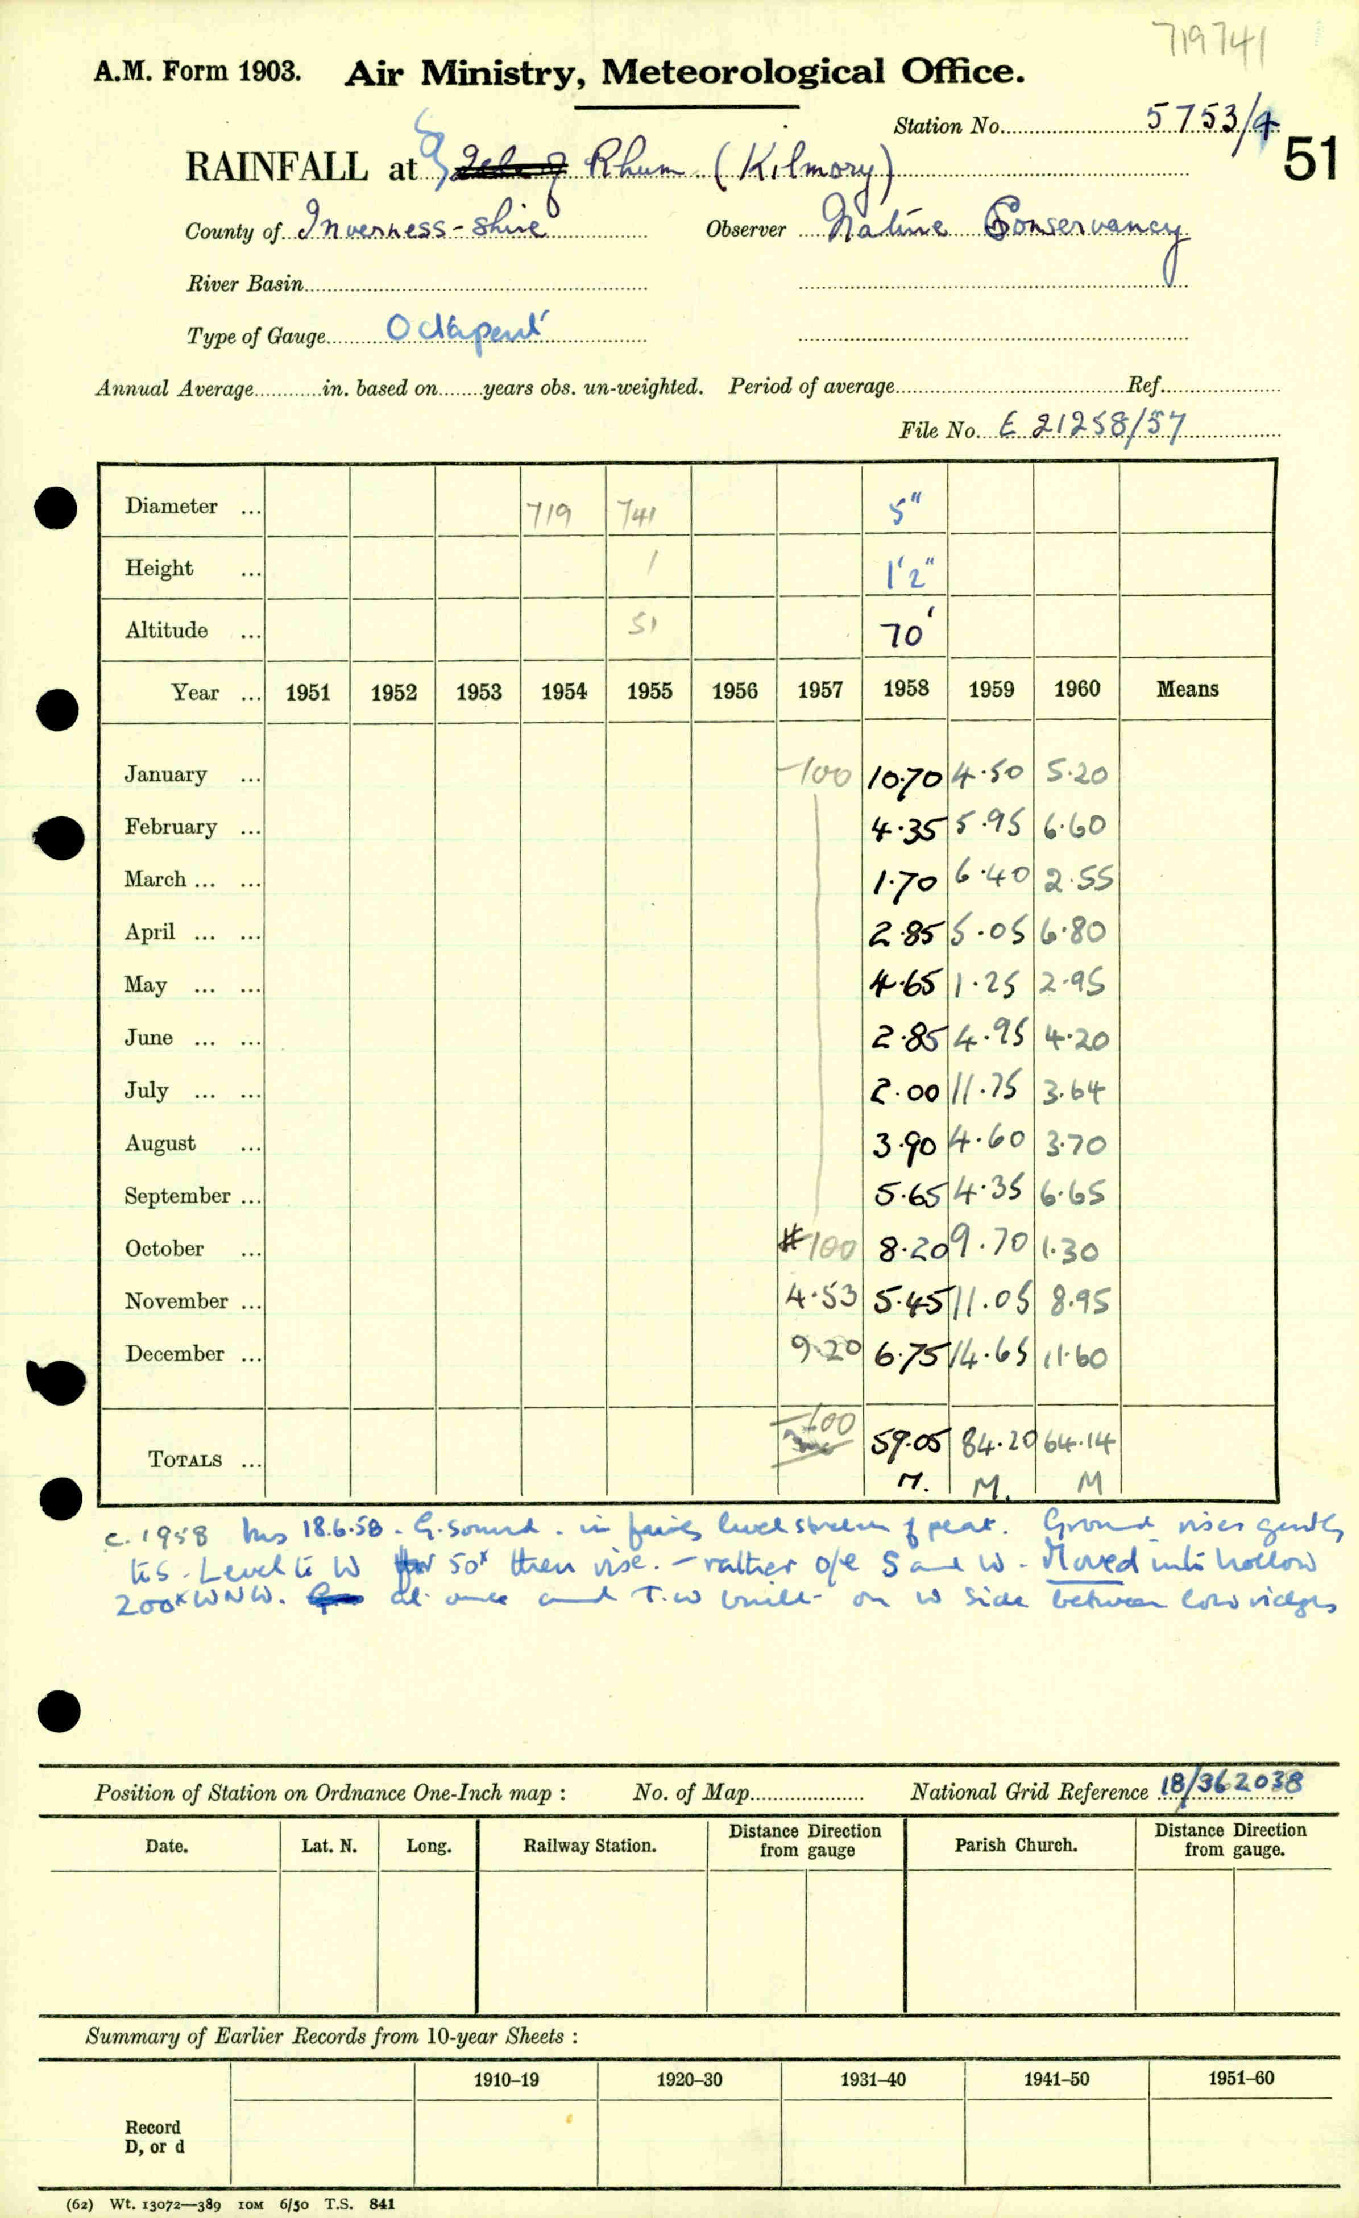 719741
A.M. Form 1903. Air Ministry, Meteorological Office.
Station No. 5753/4
51
RAINFALL at Rhum (Kilmory)
County of Inverness-shire Observer Nature Conservancy
River Basin
Type of Gauge Octapent
Annual Average in. based on years obs. un-weighted. Period of average Ref.
File No. E 21258/57
Diameter ... 719 741 5"
Height ... 1 1'2"
Altitude ... 51 70'
Year ... 1951 1952 1953 1954 1955 1956 1957 1958 1959 1960 Means
January ... -100 10.70 4.50 5.20
February ... 4.35 5.95 6.60
March ... ... 1.70 6.40 2.55
April ... ... 2.85 5.05 6.80
May ... ... 4.65 1.25 2.95
June ... ... 2.85 4.95 4.20
July ... ... 2.00 11.75 3.64
August ... 3.90 4.60 3.70
September ... 5.65 4.35 6.65
October ... 100 8.20 9.70 1.30
November ... 4.53 5.45 11.05 8.95
December ... 9.20 6.75 14.65 11.60
TOTALS ... -100 59.05 84.20 64.14
M. M. M
c. 1958 Ins 18.6.58. G. sound. in fairly level stretch of peat. Ground rises gently
to S. Level to W for 50x then rise. - rather o/e S and W. Moved into hollow
200x WNW. at once and T.W built on W side between low ridges
Position of Station on Ordnance One-Inch map : No. of Map National Grid Reference 18/362038
Date. Lat. N. Long. Railway Station. Distance Direction from gauge Parish Church. Distance Direction from gauge.
Summary of Earlier Records from 10-year Sheets :
1910–19 1920–30 1931–40 1941–50 1951–60
Record
D, or d
(62) Wt. 13072—389 10M 6/50 T.S. 841